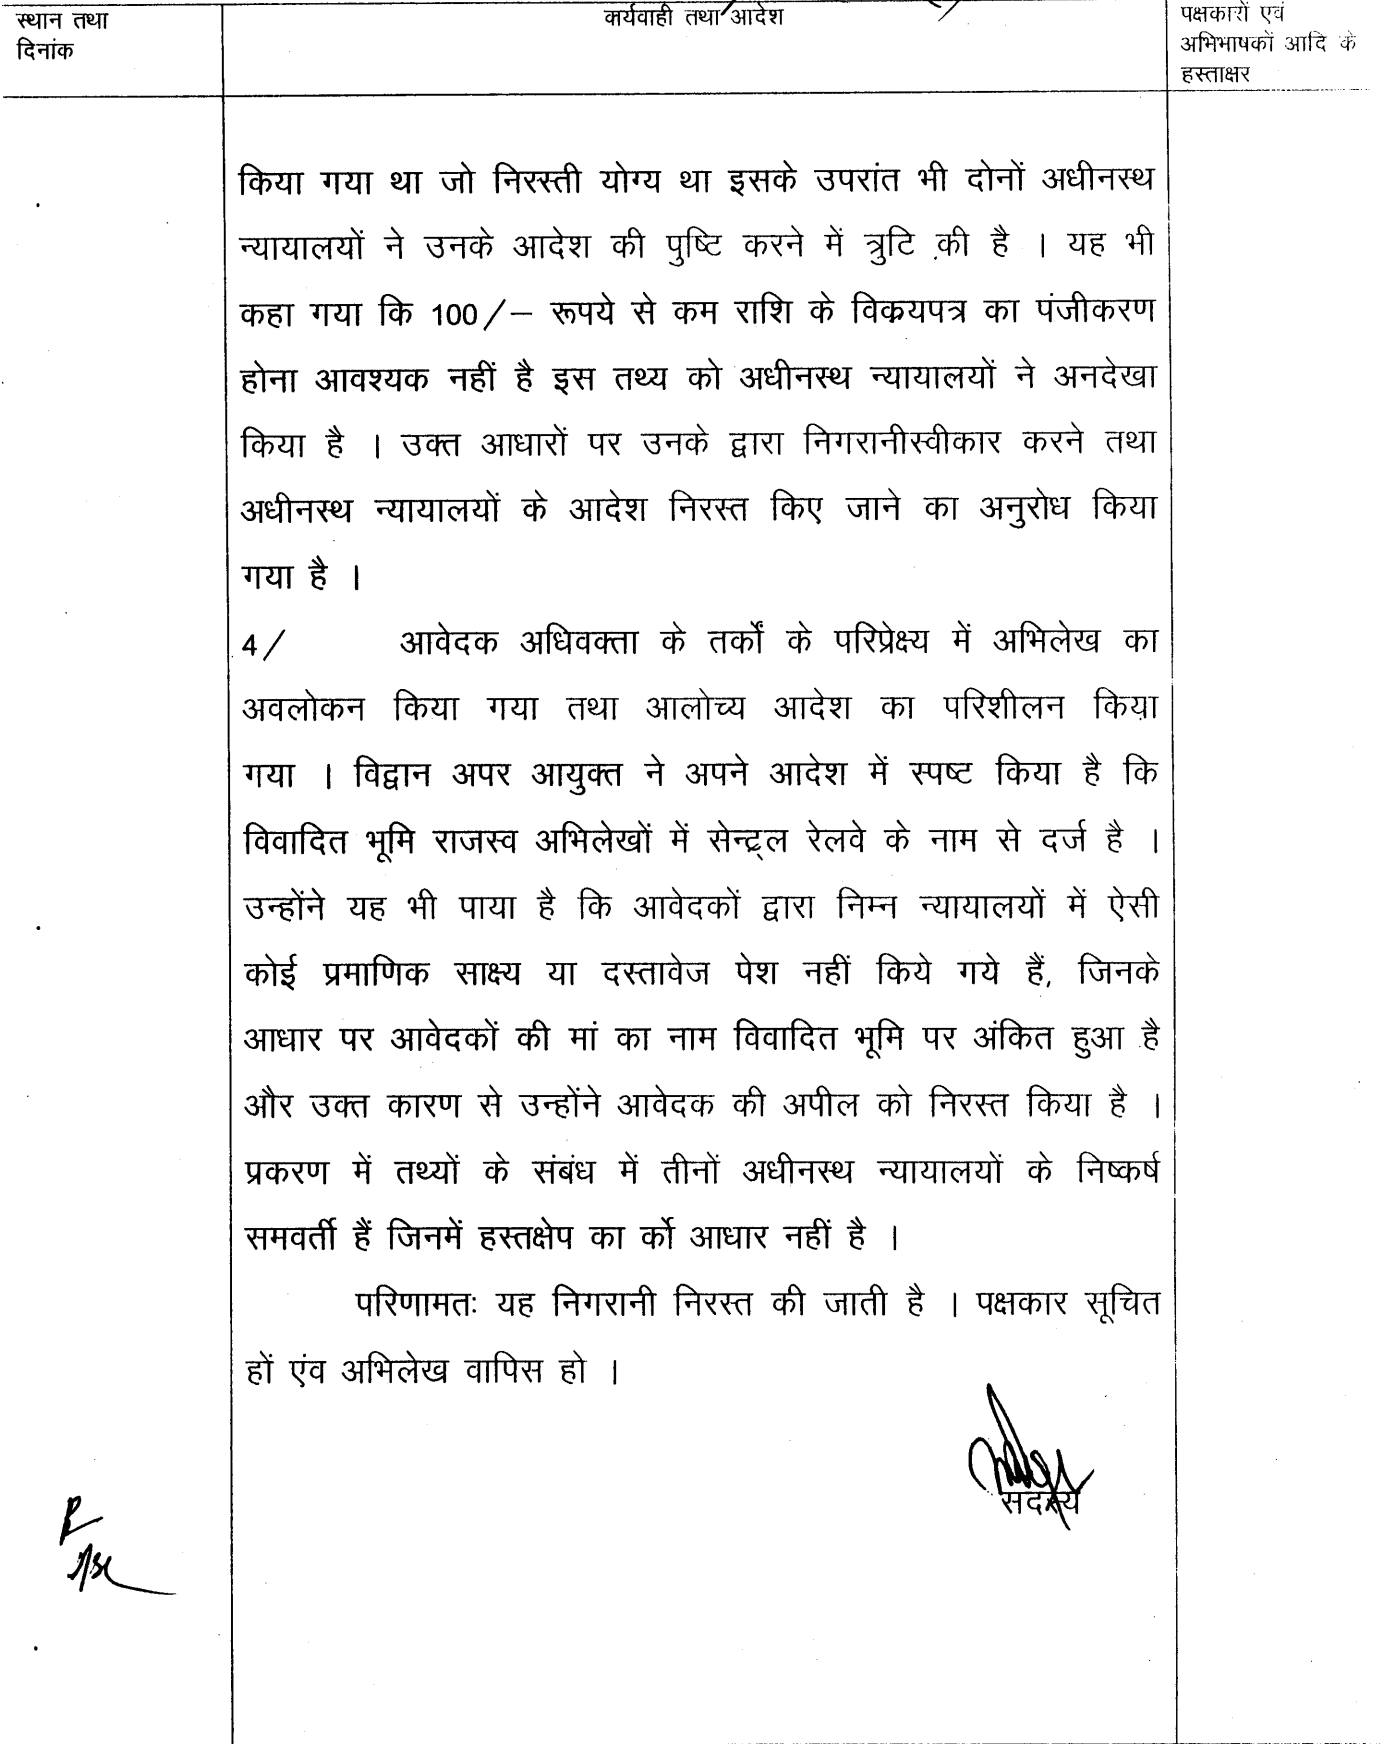 स्थान तथा
दिनांक
कार्यवाही तथा आदेश
पक्षकारों एवं
अभिभाषकों आदि के
हस्ताक्षर
किया गया था जो निरस्ती योग्य था इसके उपरांत भी दोनों अधीनस्थ
न्यायालयों ने उनके आदेश की पुष्टि करने में त्रुटि की है । यह भी
कहा गया कि 100/– रूपये से कम राशि के विक्रयपत्र का पंजीकरण
होना आवश्यक नहीं है इस तथ्य को अधीनस्थ न्यायालयों ने अनदेखा
किया है । उक्त आधारों पर उनके द्वारा निगरानीस्वीकार करने तथा
अधीनस्थ न्यायालयों के आदेश निरस्त किए जाने का अनुरोध किया
गया है ।
4/ आवेदक अधिवक्ता के तर्कों के परिप्रेक्ष्य में अभिलेख का
अवलोकन किया गया तथा आलोच्य आदेश का परिशीलन किया
गया । विद्वान अपर आयुक्त ने अपने आदेश में स्पष्ट किया है कि
विवादित भूमि राजस्व अभिलेखों में सेन्ट्र्ल रेलवे के नाम से दर्ज है ।
उन्होंने यह भी पाया है कि आवेदकों द्वारा निम्न न्यायालयों में ऐसी
कोई प्रमाणिक साक्ष्य या दस्तावेज पेश नहीं किये गये हैं, जिनके
आधार पर आवेदकों की मां का नाम विवादित भूमि पर अंकित हुआ है
और उक्त कारण से उन्होंने आवेदक की अपील को निरस्त किया है ।
प्रकरण में तथ्यों के संबंध में तीनों अधीनस्थ न्यायालयों के निष्कर्ष
समवर्ती हैं जिनमें हस्तक्षेप का र्को आधार नहीं है ।
परिणामतः यह निगरानी निरस्त की जाती है । पक्षकार सूचित
हों एंव अभिलेख वापिस हो ।
सदस्य